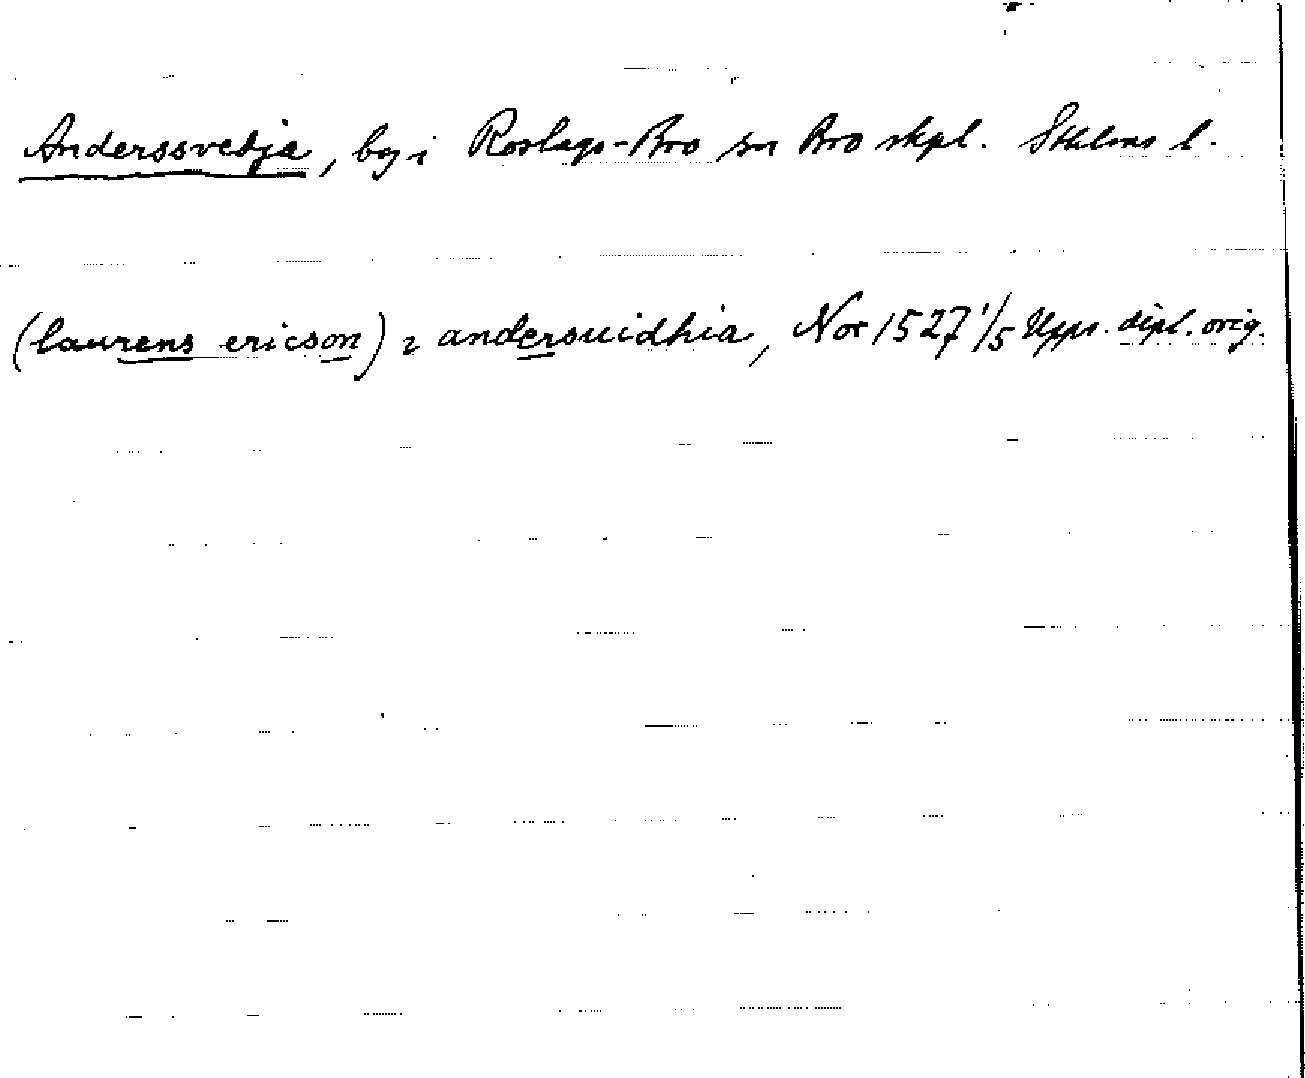 Anderssvedja, by i Roslags-Bro sn Bro skpl. Sthlms l.
(laurens ericson) i andersuidhia, Nor 1527 1/5 Upps. dipl. orig.